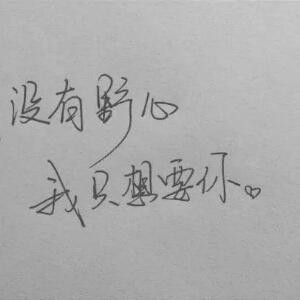 没有野心
我只想要你。